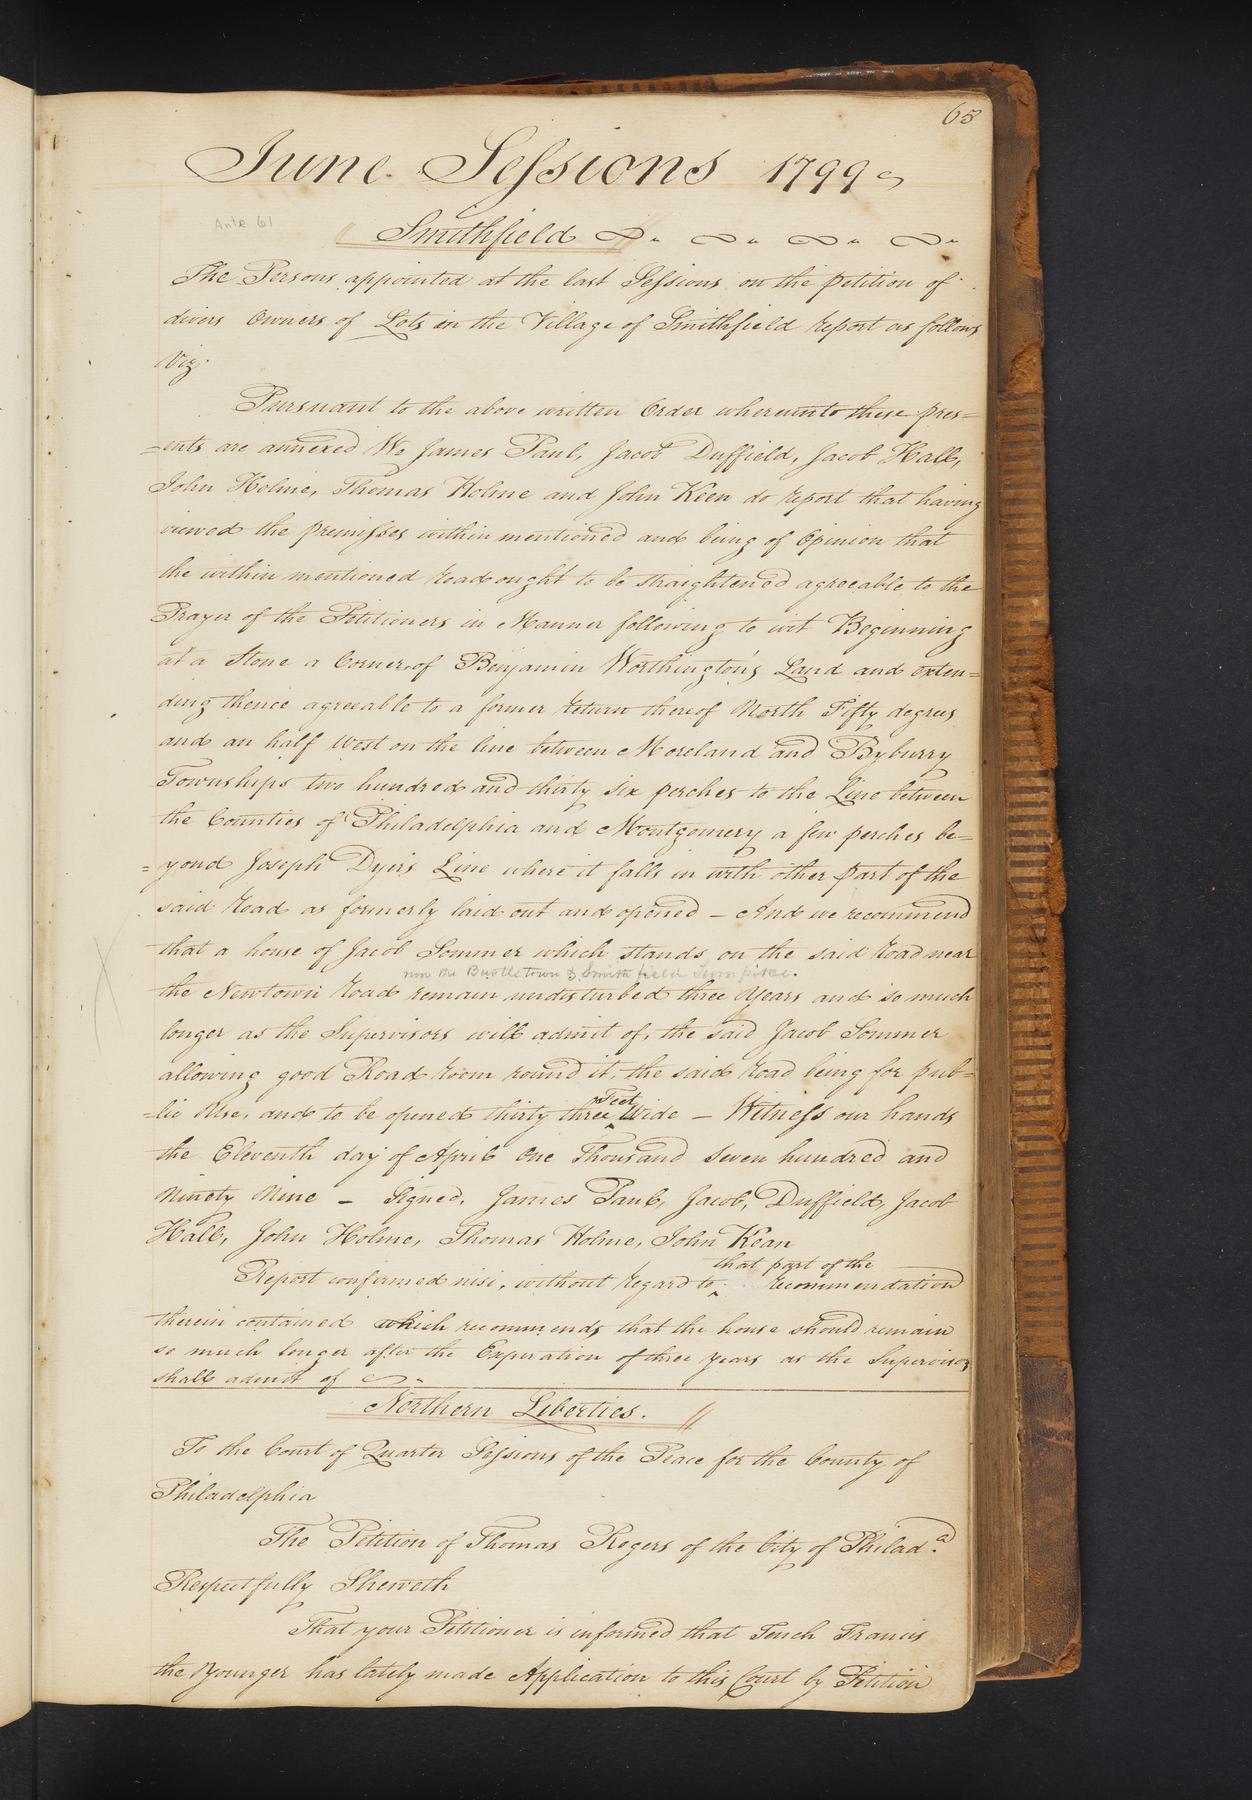 65
June Sessions 1799
Ante 61
Smithfield
The Persons appointed at the last Sessions on the petition of
divers Owners of Lots in the Village of Smithfield report as follows
Viz.
Pursuant to the above written Order whereunto these pres=
=ents are annexed We James Paul, Jacob Duffield, Jacob Hall,
John Holme, Thomas Holme and John Keen do report that having
viewed the premisses within mentioned and being of Opinion that
the within mentioned road ought to be straightened agreeable to the
Prayer of the Petitioners in Manner following to wit Beginning
at a Stone a Corner of Benjamin Worthington's Land and exten=
ding thence agreeable to a former return thereof North Fifty degrees
and an half West on the line between Moreland and Byburry
Townships two hundred and thirty six perches to the Line between
the Counties of Philadelphia and Montgomery a few perches be=
=yond Joseph Dyer's Line where it falls in with other part of the
said road as formerly laid out and opened – And we recommend
that a house of Jacob Sommer which stands on the said road near
now the Bustletown & Smithfield Turnpike.
the Newtown road remain undisturbed three Years and so much
longer as the Supervisors will admit of, the said Jacob Sommer
allowing good Road room round it, the said road being for pub=
=lic Use, and to be opened thirty three Feet Wide – Witness our hands
the Eleventh day of April One Thousand Seven hundred and
Ninety Nine – Signed, James Paul, Jacob, Duffield, Jacob
Hall, John Holme, Thomas Holme, John Kean
Report confirmed nisi, without regard to that part of the recommendation
therein contained which recommends that the house should remain
so much longer after the Expiration of three years as the Supervisors
shall admit of
Northern Liberties.
To the Court of Quarter Sessions of the Peace for the County of
Philadelphia
The Petition of Thomas Rogers of the City of Philad.a
Respectfully Sheweth
That your Petitioner is informed that Tench Francis
the Younger has lately made Application to this Court by Petition